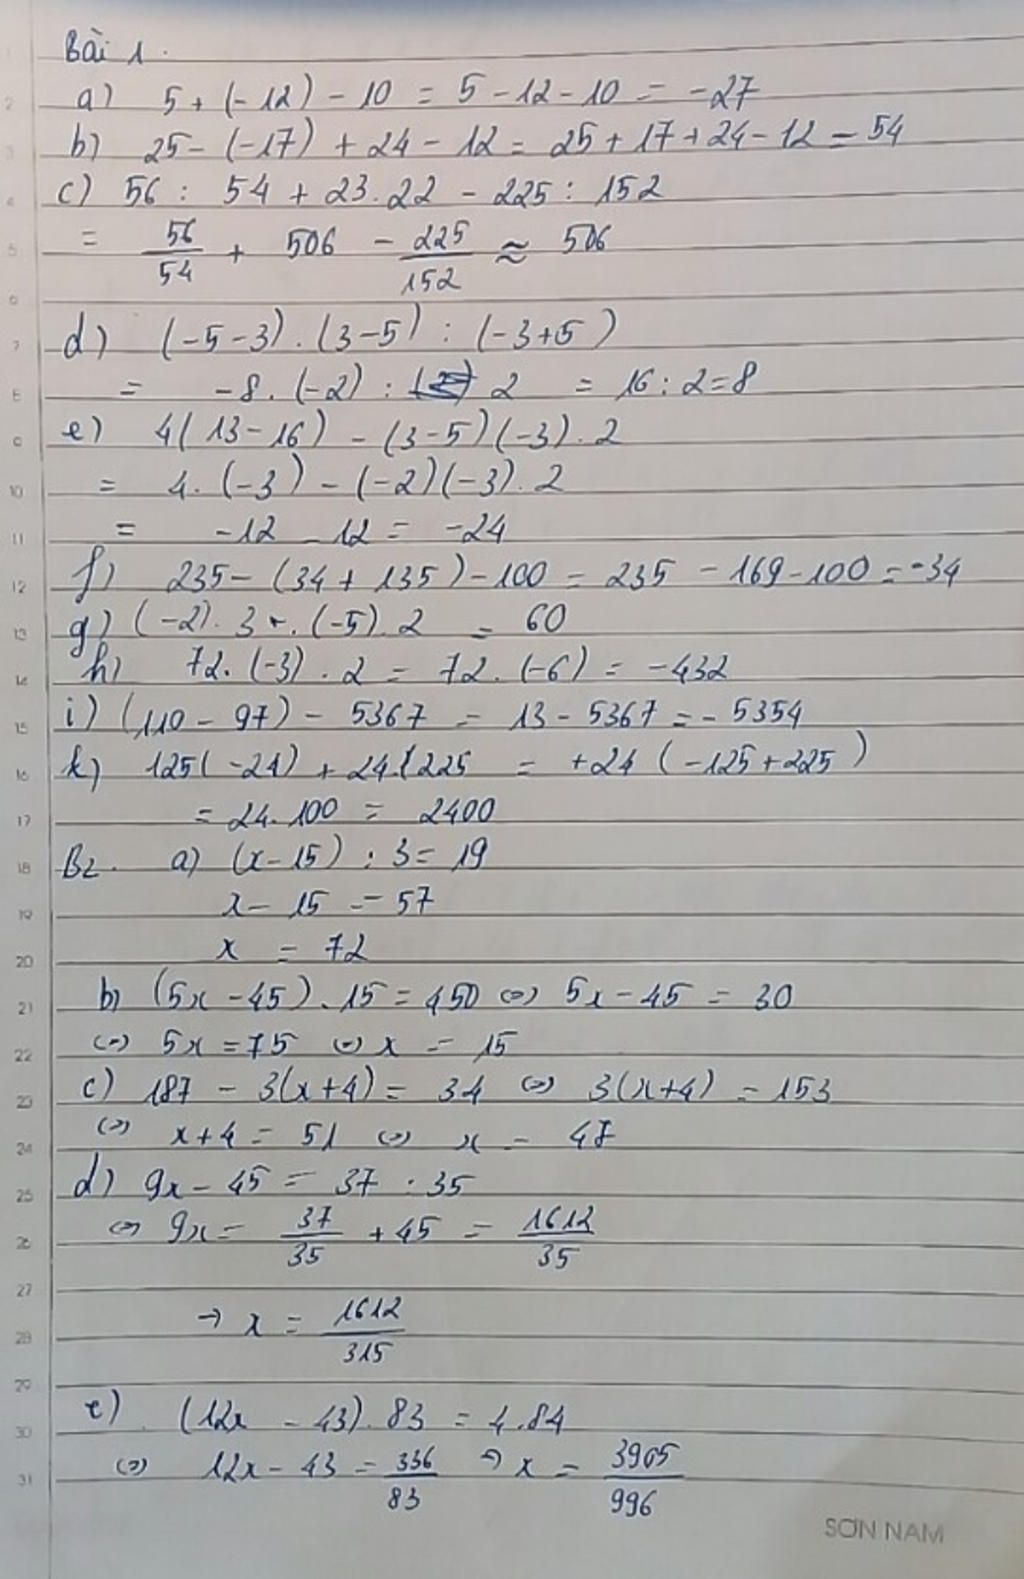 Bài 1.
a) 5 + (-12) - 10 = 5 - 12 - 10 = -27
b) 25 - (-17) + 24 - 12 = 25 + 17 + 24 - 12 = 54
c) 56 : 54 + 23.22 - 225 : 152
= 56/54 + 506 - 225/152 ≈ 506
d) (-5-3) . (3-5) : (-3+5)
= -8 . (-2) : 2 = 16 : 2 = 8
e) 4(13-16) - (3-5)(-3).2
= 4.(-3) - (-2)(-3).2
= -12 - 12 = -24
f) 235 - (34 + 135) - 100 = 235 - 169 - 100 = -34
g) (-2).3.(-5).2 = 60
h) 72.(-3).2 = 72.(-6) = -432
i) (110 - 97) - 5367 = 13 - 5367 = -5354
k) 125(-24) + 24.225 = +24(-125+225)
= 24.100 = 2400
B2. a) (x-15) : 3 = 19
x - 15 = 57
x = 72
b) (5x - 45).15 = 450 <=> 5x - 45 = 30
<=> 5x = 75 <=> x = 15
c) 187 - 3(x+4) = 34 <=> 3(x+4) = 153
<=> x+4 = 51 <=> x = 47
d) 9x - 45 = 37 : 35
<=> 9x = 37/35 + 45 = 1612/35
→ x = 1612/315
e) (12x - 43).83 = 4.84
<=> 12x - 43 = 336/83 → x = 3905/996
SƠN NAM